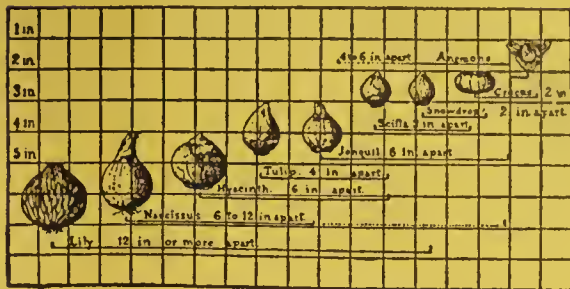 1 in
2 in
4 to 6 in apart Anemone
Crocus, 2 in
3 in
Snowdrop, 2 in apart
4 in
Scilla 3 in apart
Jonquil 6 in apart
5 in
Tulip. 4 in apart
Hyacinth. 6 in apart
Narcissus 6 to 12 in apart
Lily 12 in or more apart